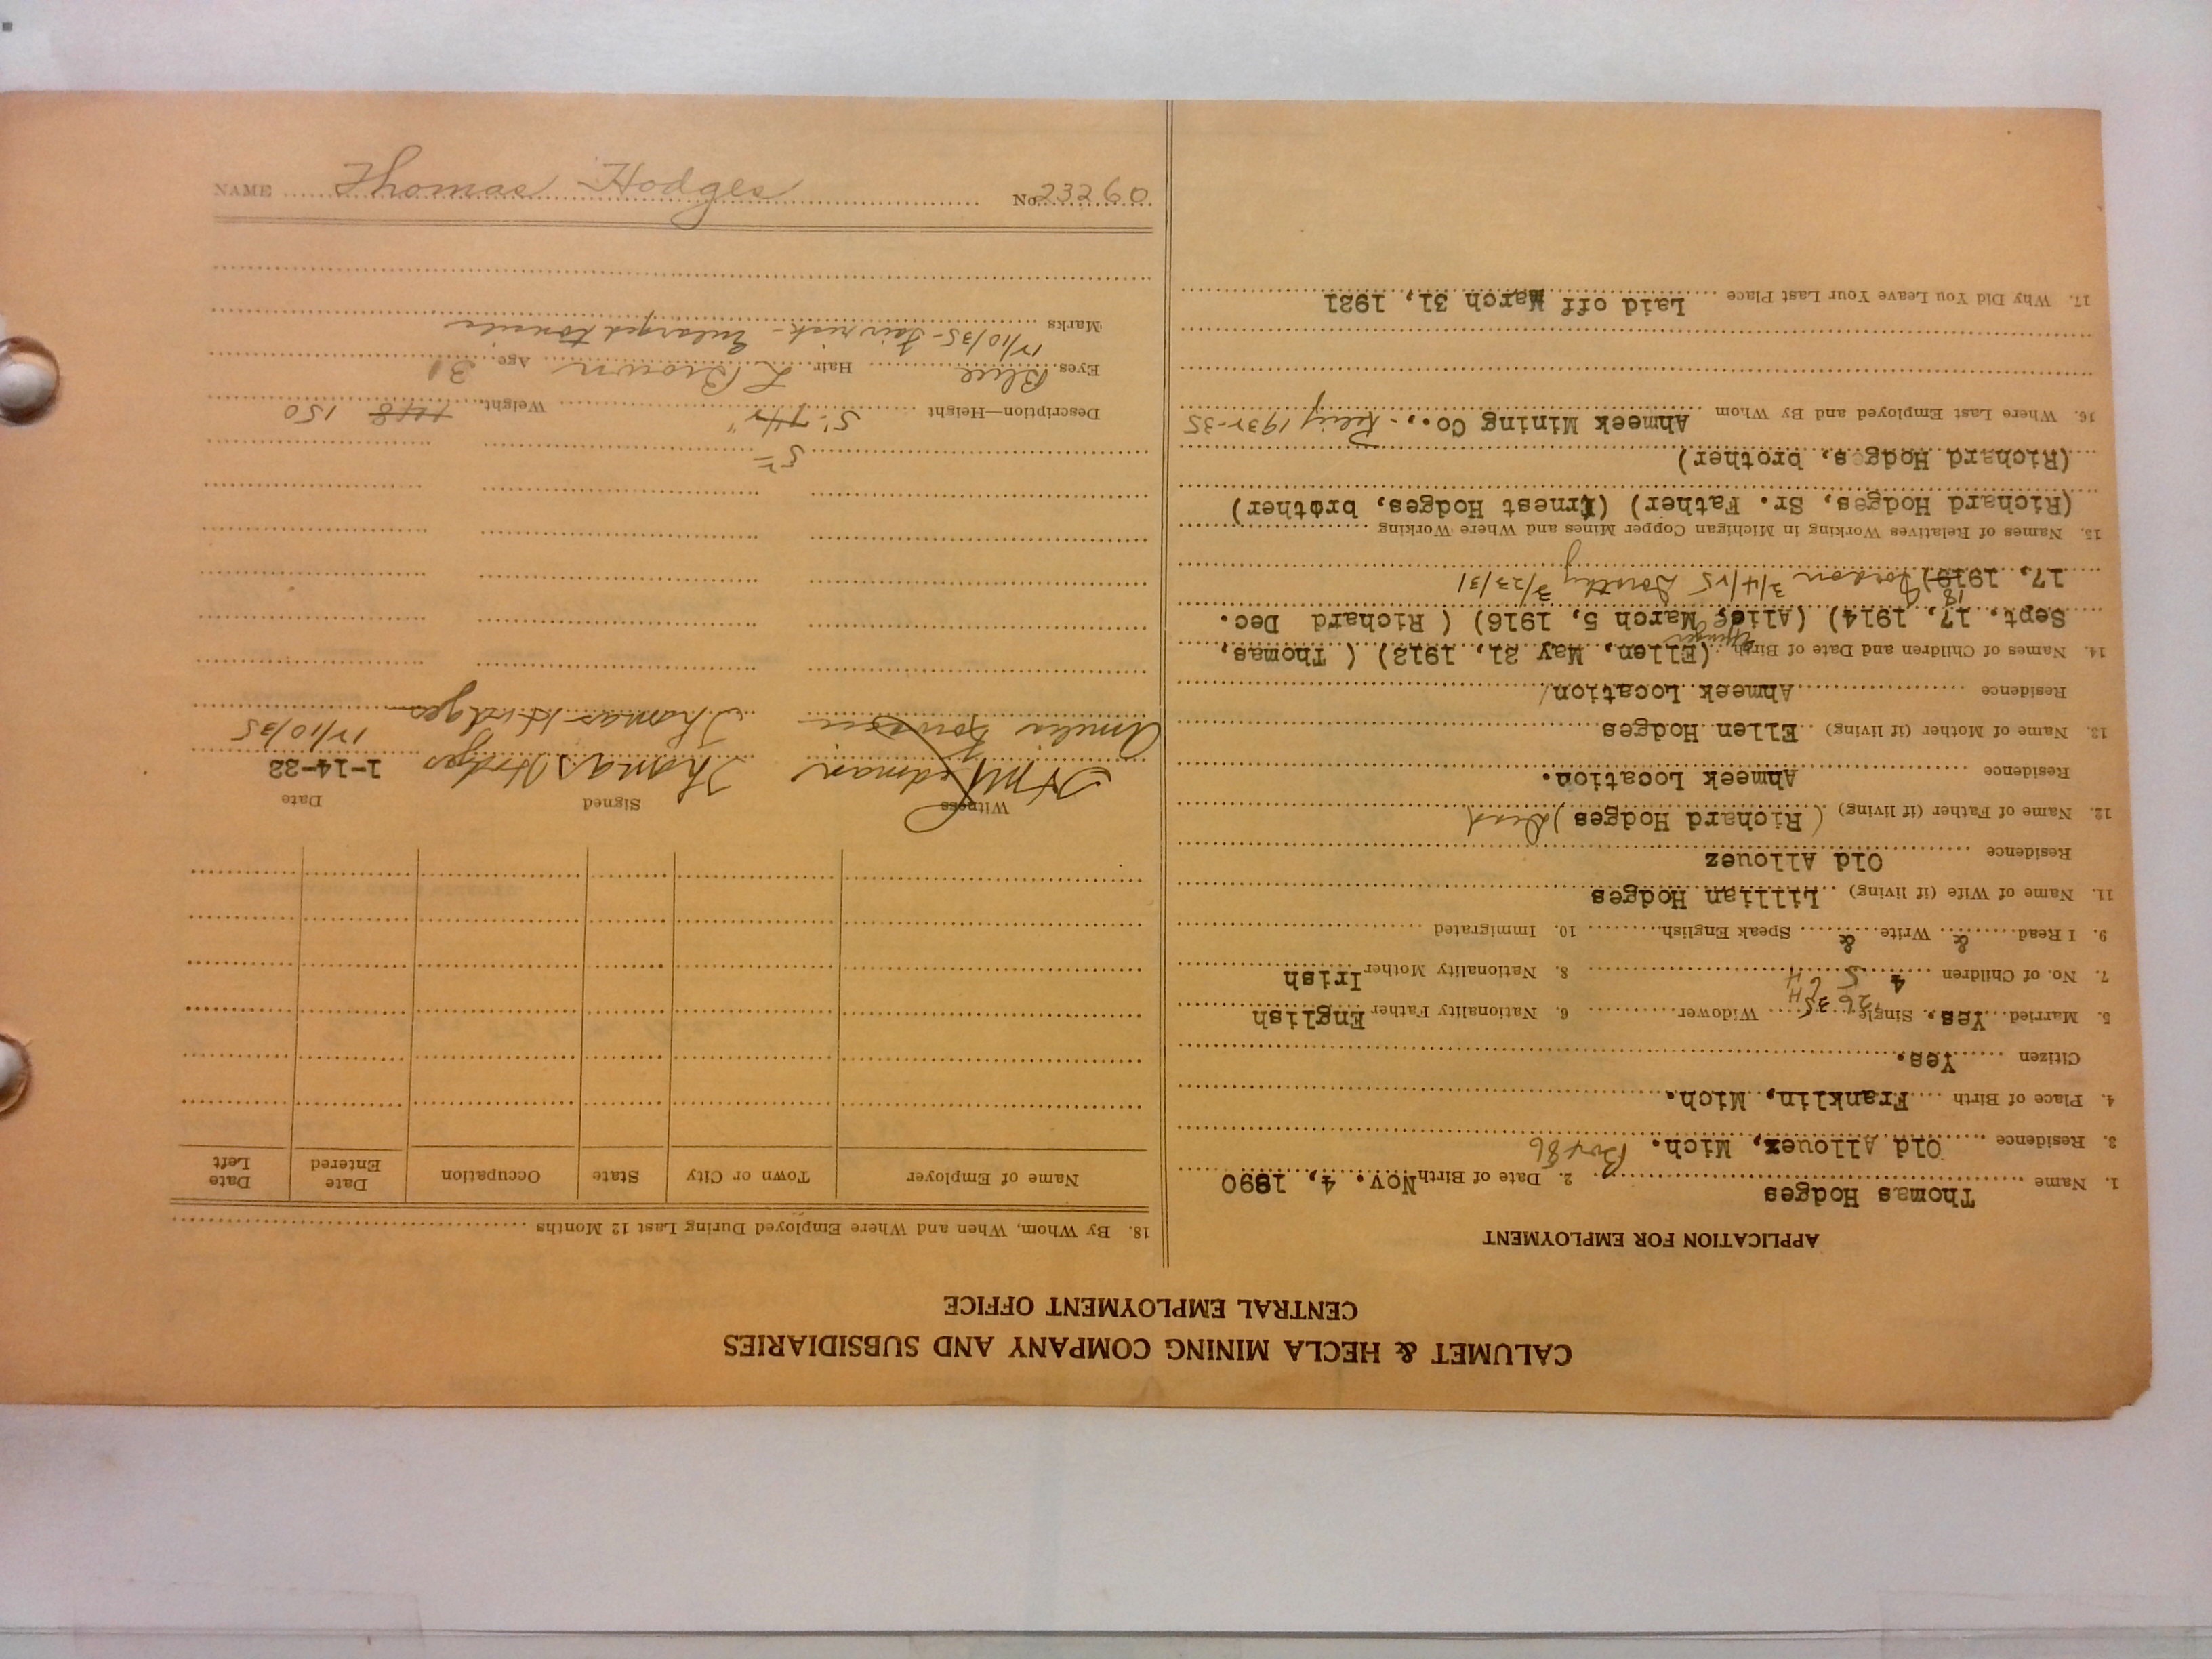 CALUMET & HECLA MINING COMPANY AND SUBSIDIARIES
CENTRAL EMPLOYMENT OFFICE
APPLICATION FOR EMPLOYMENT
1. Name Thomas Hodges 2. Date of Birth Nov. 4, 1890
3. Residence Old Allouez, Mich. Box 86
4. Place of Birth Franklin, Mich.
Citizen Yes.
5. Married Yes. Single 26 35 H Widower 6. Nationality Father English
7. No. of Children 4 5 6 H 8. Nationality Mother Irish
9. I Read & Write & Speak English 10. Immigrated
11. Name of Wife (if living) Lillian Hodges
Residence Old Allouez
12. Name of Father (if living) (Richard Hodges) Dead
Residence Ahmeek Location.
13. Name of Mother (if living) Ellen Hodges
Residence Ahmeek Location
14. Names of Children and Date of Birth (Ellen, May 21, 1912) ( Thomas,
Sept. 17, 1914) (Alice, March 5, 1916) ( Richard Dec.
17, 1919) 18 Gordon 3/4/25 Dorothy 3/23/31
15. Names of Relatives Working in Michigan Copper Mines and Where Working
(Richard Hodges, Sr. Father) (Ernest Hodges, brother)
(Richard Hodges, brother)
16. Where Last Employed and By Whom Ahmeek Mining Co., - Relief 1934-35
17. Why Did You Leave Your Last Place Laid off March 31, 1921
18. By Whom, When and Where Employed During Last 12 Months
Name of Employer Town or City State Occupation Date Entered Date Left
Witness Signed Date
Thomas Hodges 1-14-22
Amelia Thomas Hodges 12/10/35
Description—Height 5' 7 1/2" Weight 148 150
Eyes Blue Hair L Brown Age 31
Marks 12/10/35 - Fair risk - Enlarged tonsils
NAME Thomas Hodges No. 23260